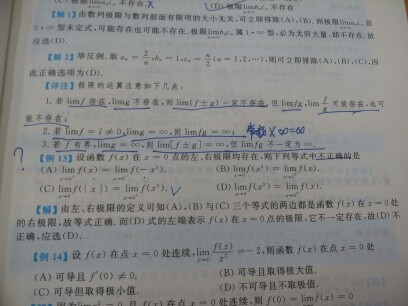 【解1】由数列极限与数列前面有限项的大小无关,可立即排除(A),(B),而极限lim aₙcₙ 是
0·∞型未定式,可能存在也可能不存在.极限lim bₙcₙ 属1·∞型,必为无穷大量,即不存在.故
应选(D).
【解2】举反例.取aₙ = 2/n, bₙ = 1, cₙ = n/2 (n = 1,2,…),则可立即排除(A),(B),(C),因
此正确选项为(D).
【评注】极限的运算注意如下几点:
1. 若lim f存在,lim g不存在,则lim(f±g)一定不存在,但lim fg,lim f/g可能存在,也可
能不存在;
2. 若lim f = l ≠ 0, lim g = ∞,则lim fg = ∞;
常数×∞=∞
3. 若f有界,lim g = ∞,则lim(f±g) = ∞,但lim fg不一定为∞.
?
【例13】设函数f(x)在x = 0点的左、右极限均存在,则下列等式中不正确的是
(A) lim f(x) = lim f(−x³).
(B) lim f(x²) = lim f(x).
(C) lim f(|x|) = lim f(x²).
(D) lim f(x³) = lim f(x).
【解】由左、右极限的定义可知(A),(B)与(C)三个等式的两边都是函数f(x)在x = 0处
的右极限,故等式正确.而(D)式的左端表示f(x)在x = 0点的极限,它不一定存在,故(D)不
正确,应选(D).
【例14】设f(x)在点x = 0处连续,lim f(x)/x² = −2,则函数f(x)在点x = 0处
(A) 可导且f′(0) ≠ 0.
(B) 可导且取得极大值.
(C) 可导但取得极小值.
(D) 不可导且不取极值.